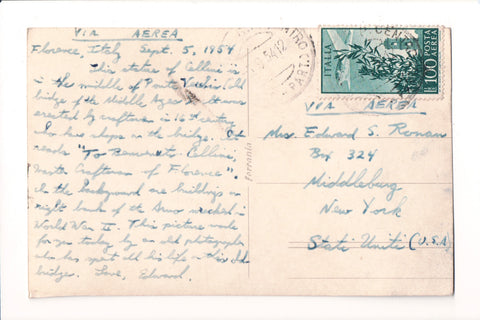 VIA AEREA
Florence, Italy Sept. 5, 1954
This statue of Cellini is
in the middle of Ponte Vecchio (Old
bridge of the Middle Ages). It was
erected by craftsmen in 16th century
who have shops on the bridge. It
reads "To Benvenuto Cellini,
Master Craftsman of Florence".
In the background are buildings on
right bank of the Arno wrecked in
World War II. This picture made
for you today by an old photographer
who has spent all his life on this old
bridge. Love, Edward.
ferrania
ITALIA
POSTA AEREA
L. 100
VIA AEREA
Mrs. Edward S. Ronan
Box 324
Middleburg
New York
Stati Uniti (U.S.A)